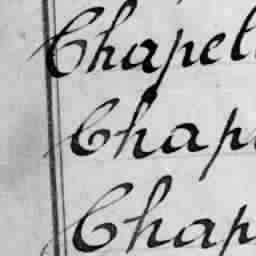 Chapel
Chap
Chap